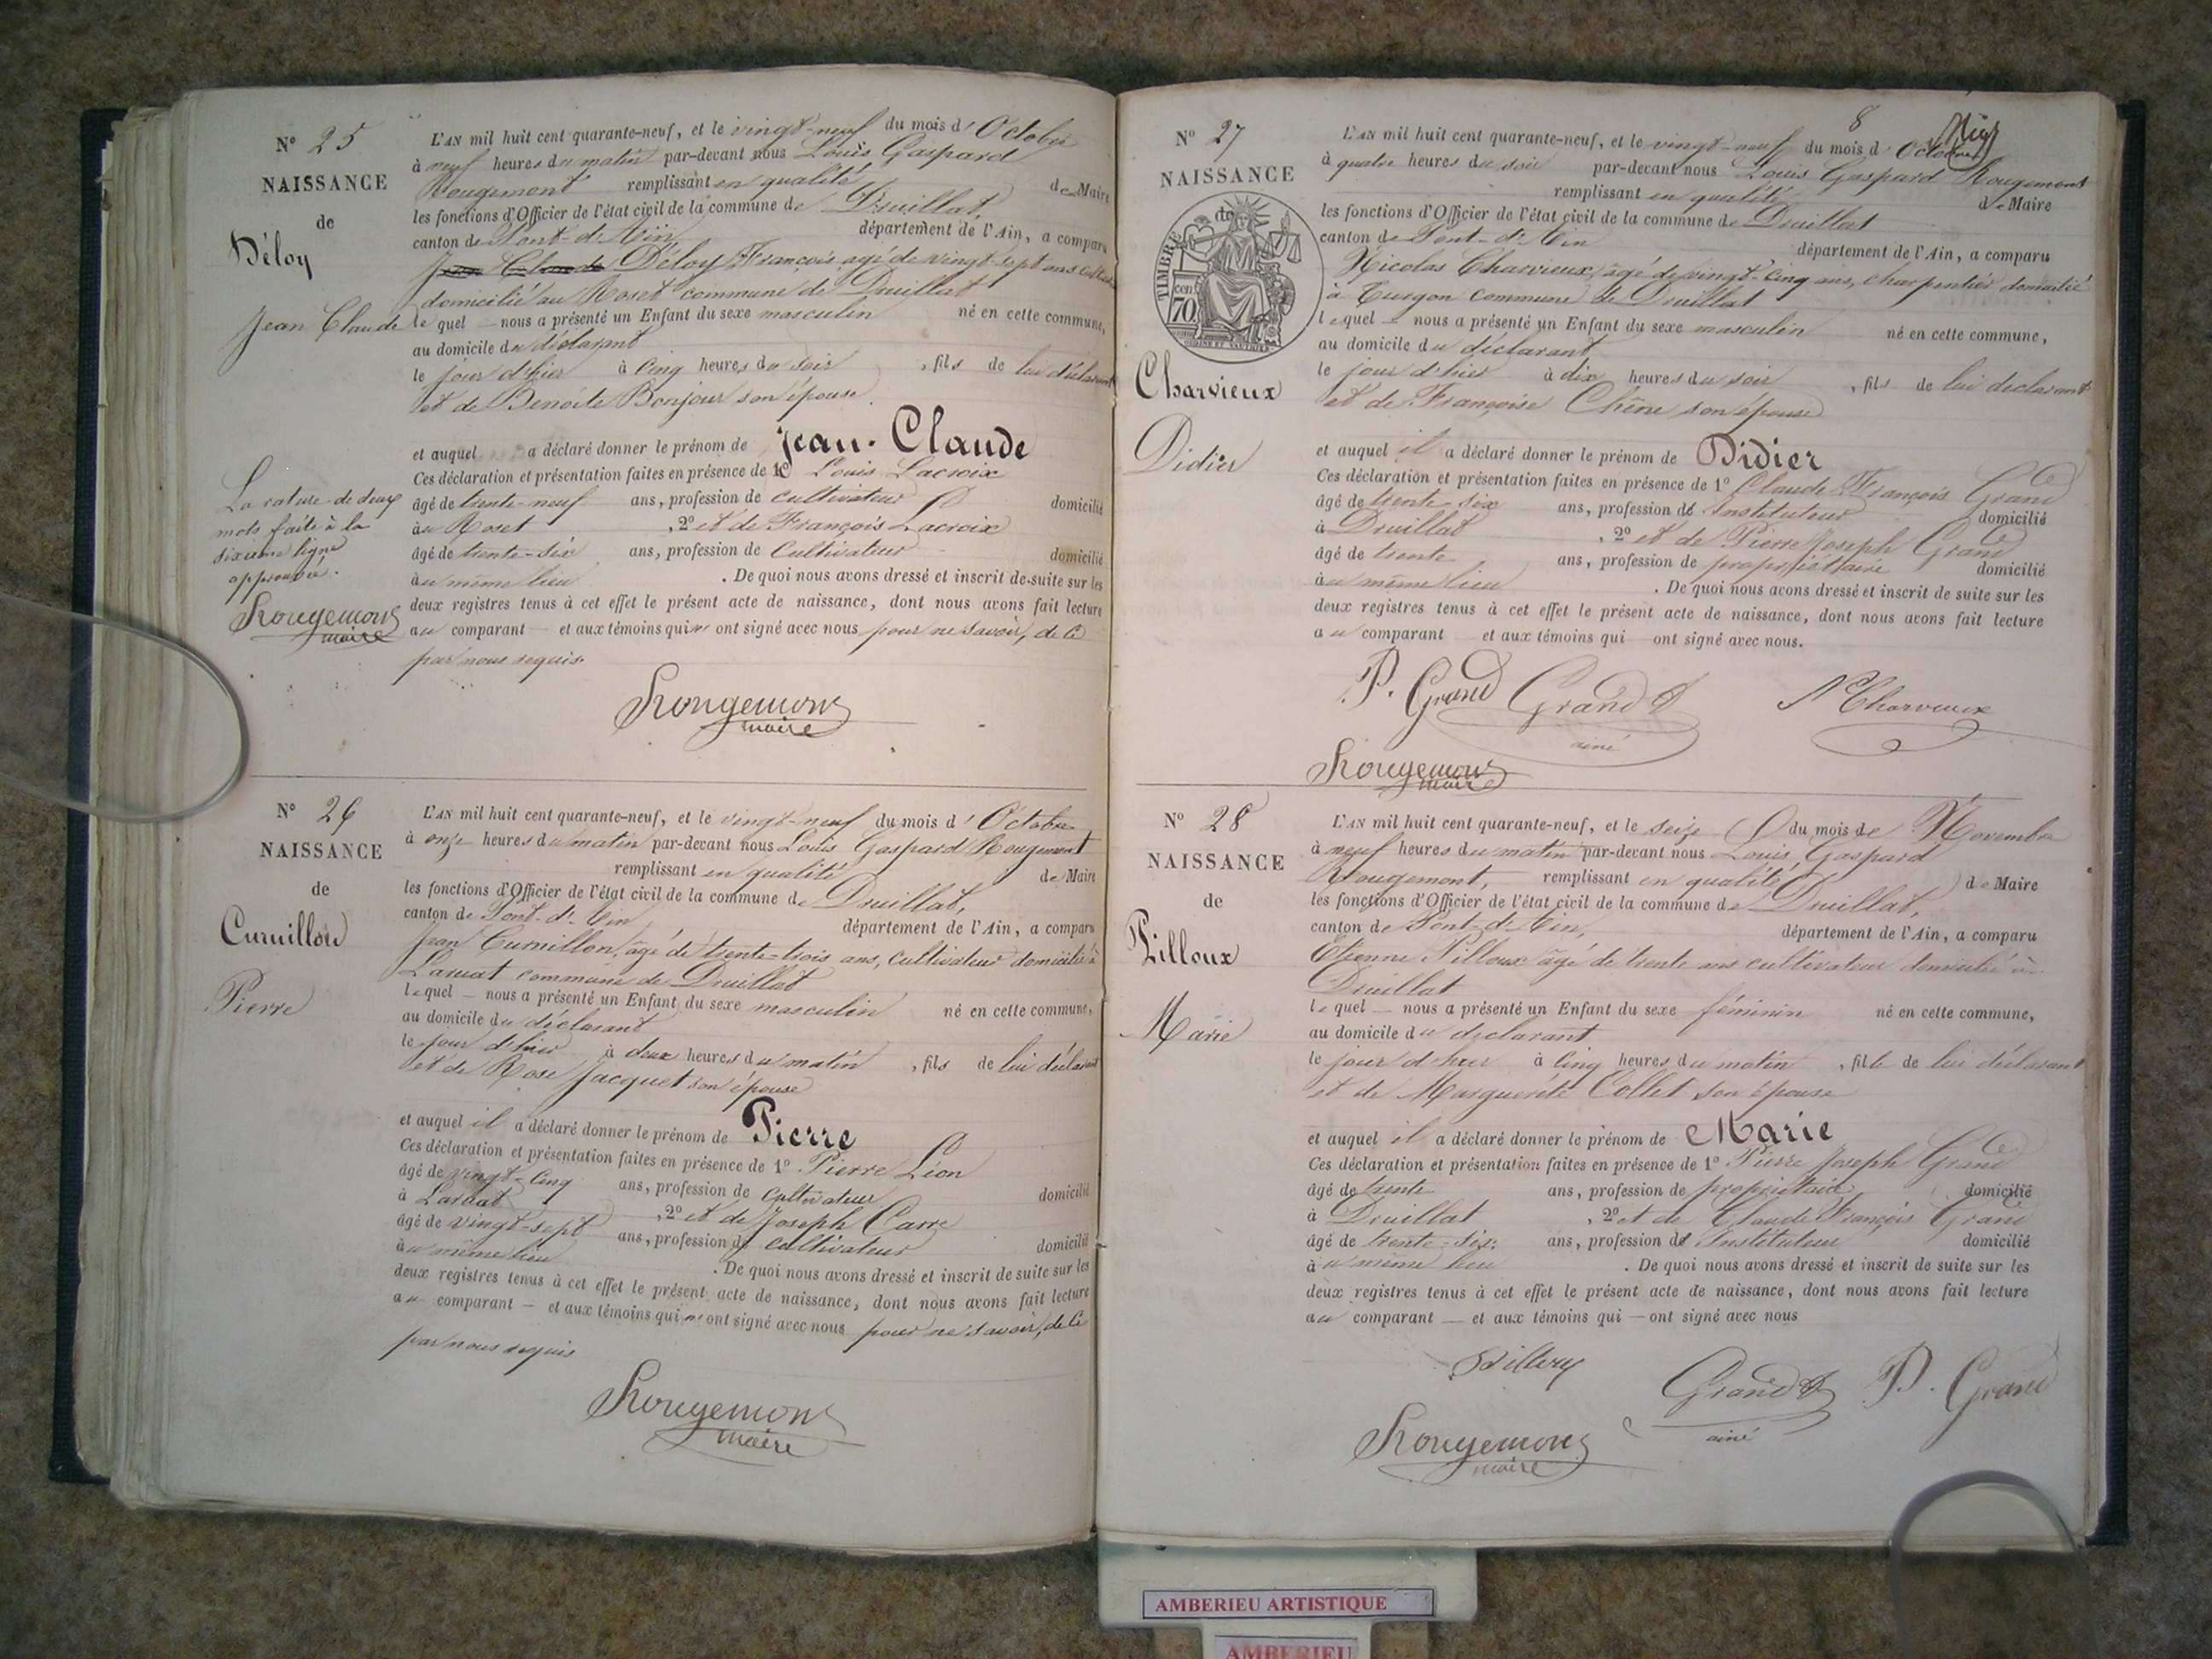 N° 25
NAISSANCE
de
Déloy
Jean Claude
L'AN mil huit cent quarante-neuf, et le vingt-neuf du mois d'Octobre
à neuf heures du matin par-devant nous Louis Gaspard
Rougemont remplissant en qualité de Maire
les fonctions d'Officier de l'état civil de la commune de Druillat,
canton de Pont-d'Ain département de l'Ain, a comparu
Jean Claude Déloy François agé de vingt-sept ans
domicilié au Roset commune de Druillat
lequel — nous a présenté un Enfant du sexe masculin né en cette commune,
au domicile du déclarant
le jour d'hier à cinq heures du soir, fils de lui déclarant
et de Benoite Bonjour son épouse
et auquel a déclaré donner le prénom de Jean-Claude
Ces déclaration et présentation faites en présence de 1° Louis Lacroix
âgé de trente-neuf ans, profession de cultivateur domicilié
au Roset, 2° et de François Lacroix
âgé de trente-six ans, profession de Cultivateur domicilié
au même lieu. De quoi nous avons dressé et inscrit de suite sur les
deux registres tenus à cet effet le présent acte de naissance, dont nous avons fait lecture
au comparant — et aux témoins qui n' ont signé avec nous pour ne savoir, de ce
par nous requis.
La rature de deux
mots faite à la
sixième ligne
approuvée.
Rougemont
maire
Rougemont
maire
N° 26
NAISSANCE
de
Curnillon
Pierre
L'AN mil huit cent quarante-neuf, et le vingt-neuf du mois d'Octobre
à onze heures du matin par-devant nous Louis Gaspard Rougemont
remplissant en qualité de Maire
les fonctions d'Officier de l'état civil de la commune de Druillat,
canton de Pont-d'Ain département de l'Ain, a comparu
Jean Curnillon, âgé de trente-trois ans, cultivateur domicilié à
commune de Druillat
lequel — nous a présenté un Enfant du sexe masculin né en cette commune,
au domicile du déclarant
le jour d'hier à deux heures du matin, fils de lui déclarant
et de Rose Jacquet son épouse
et auquel il a déclaré donner le prénom de Pierre
Ces déclaration et présentation faites en présence de 1° Pierre Léon
âgé de vingt-cinq ans, profession de cultivateur domicilié
à, 2° et de Joseph Carre
âgé de vingt-sept ans, profession de cultivateur domicilié
au même lieu. De quoi nous avons dressé et inscrit de suite sur les
deux registres tenus à cet effet le présent acte de naissance, dont nous avons fait lecture
au comparant — et aux témoins qui n' ont signé avec nous pour ne savoir, de ce
par nous requis
Rougemont
maire
8
N° 27
NAISSANCE
de
TIMBRE
70
Charvieux
Didier
L'AN mil huit cent quarante-neuf, et le vingt-neuf du mois d'Octobre
à quatre heures du soir par-devant nous Louis Gaspard Rougemont
remplissant en qualité de Maire
les fonctions d'Officier de l'état civil de la commune de Druillat
canton de Pont-d'Ain département de l'Ain, a comparu
Nicolas Charvieux, âgé de vingt-cinq ans, charpentier domicilié
à Turgon commune de Druillat
lequel — nous a présenté un Enfant du sexe masculin né en cette commune,
au domicile du déclarant
le jour d'hier à dix heures du soir, fils de lui déclarant
et de Françoise Chêne son épouse
et auquel il a déclaré donner le prénom de Didier
Ces déclaration et présentation faites en présence de 1° Claude François Grand
âgé de trente-six ans, profession d'Instituteur domicilié
à Druillat, 2° et de Pierre Joseph Grand
âgé de trente ans, profession de propriétaire domicilié
au même lieu. De quoi nous avons dressé et inscrit de suite sur les
deux registres tenus à cet effet le présent acte de naissance, dont nous avons fait lecture
au comparant — et aux témoins qui — ont signé avec nous.
P. Grand Grand ainé N Charvieux
Rougemont
maire
N° 28
NAISSANCE
de
Pilloux
Marie
L'AN mil huit cent quarante-neuf, et le seize du mois de Novembre
à neuf heures du matin par-devant nous Louis Gaspard
Rougemont, remplissant en qualité de Maire
les fonctions d'Officier de l'état civil de la commune de Druillat,
canton de Pont-d'Ain, département de l'Ain, a comparu
Etienne Pilloux âgé de trente ans cultivateur domicilié à
Druillat
lequel — nous a présenté un Enfant du sexe féminin né en cette commune,
au domicile du déclarant
le jour d'hier à cinq heures du matin, fille de lui déclarant
et de Marguerite Collet son épouse
et auquel il a déclaré donner le prénom de Marie
Ces déclaration et présentation faites en présence de 1° Pierre Joseph Grand
âgé de trente ans, profession de propriétaire domicilié
à Druillat, 2° et de Claude François Grand
âgé de trente-six ans, profession d'Instituteur domicilié
au même lieu. De quoi nous avons dressé et inscrit de suite sur les
deux registres tenus à cet effet le présent acte de naissance, dont nous avons fait lecture
au comparant — et aux témoins qui — ont signé avec nous
Grand ainé P. Grand
Rougemont
maire
AMBERIEU ARTISTIQUE
AMBERIEU